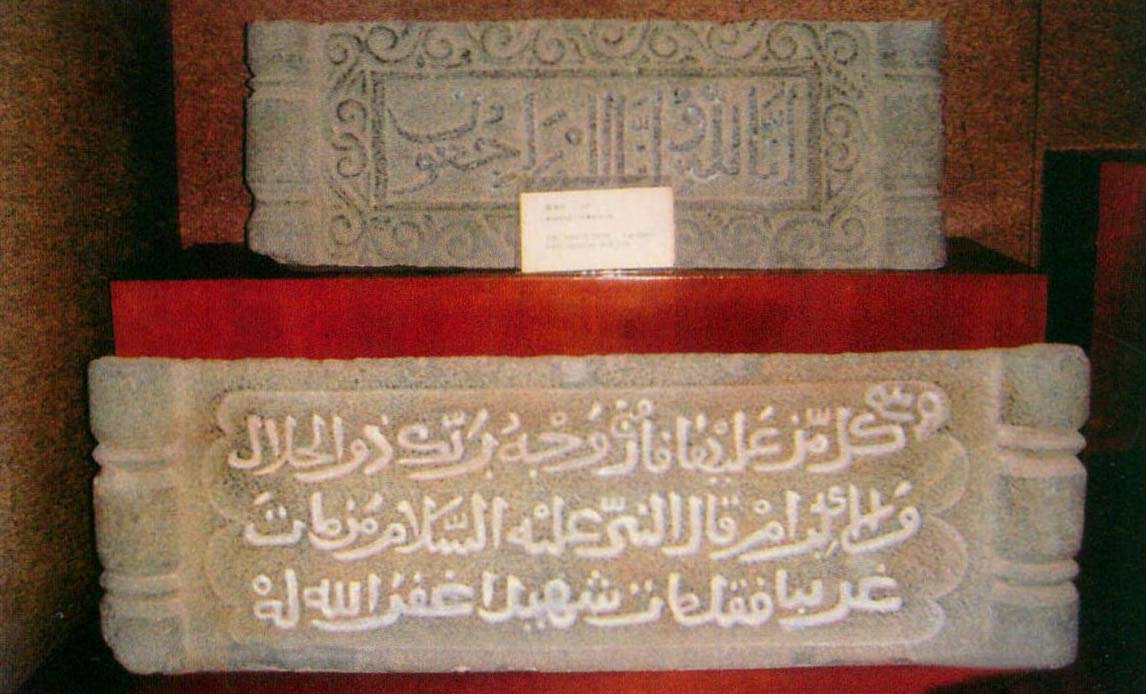 إنا لله وإنا إليه راجعون
كل من عليها فان ويبقى وجه ربك ذو الجلال
والإكرام قال النبي عليه السلام من مات
غريبا فقد مات شهيدا غفر الله له